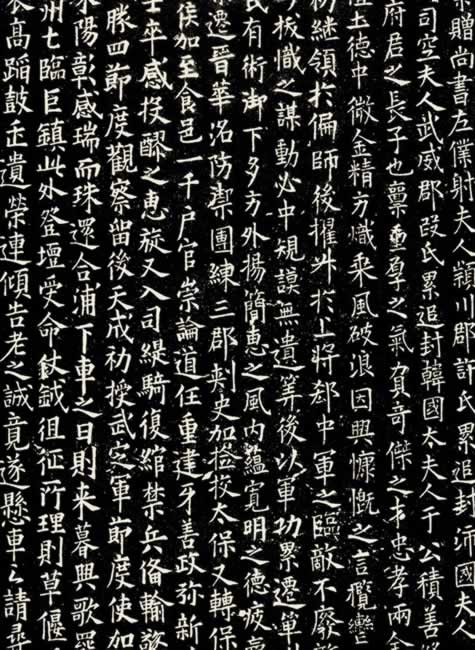 贈尚書左僕射夫人潁川郡許氏累追封沛國夫人
司空夫人武威郡段氏累追封韓國太夫人于公積善
府君之長子也稟之氣負奇傑之才忠孝兩全
土德中微金精方熾乘風破浪因興慷慨之言攬轡
初繼領於偏師後擢升於上將郄中軍之臨敵不廢
拔幟之謀動必中規謨無遺筭後以軍功累遷單
民有術御下多方外揚簡恵之風内蘊寬明之德疲
遷晉華洺防禦團練三郡刾史加撿挍太保又轉保
侯加至食邑一千户官崇論道任重建牙善政弥新
士卒感投醪之恵旋又入司緹騎復綰禁兵俻輪
滕四節度觀察留後天成初授武定軍節度使加
陽彰感瑞而珠還合浦下車之日則来暮興歌羅
州七臨巨鎮此外登壇受命仗鉞徂征所理則草偃
高蹈鼓缶遺榮連傾告老之誠竟遂懸車之請尋